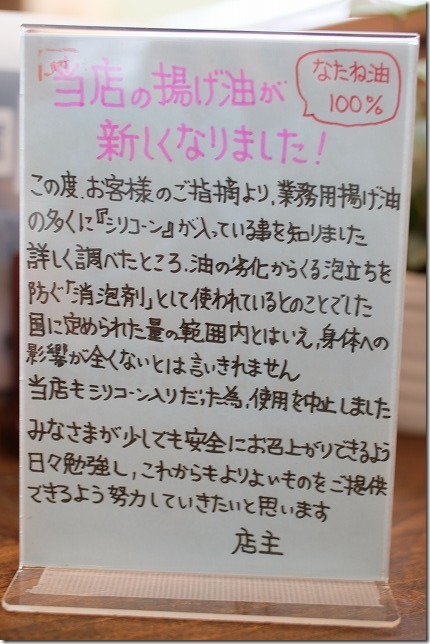 当店の揚げ油が
新しくなりました!
なたね油
100%
この度、お客様のご指摘より、業務用揚げ油
の多くに『シリコーン』が入っている事を知りました
詳しく調べたところ、油の劣化からくる泡立ちを
防ぐ「消泡剤」として使われているとのことでした
国に定められた量の範囲内とはいえ、身体への
影響が全くないとは言いきれません
当店もシリコーン入りだった為、使用を中止しました
みなさまが少しでも安全にお召上がりできるよう
日々勉強し、これからもよりよいものをご提供
できるよう努力していきたいと思います
店主